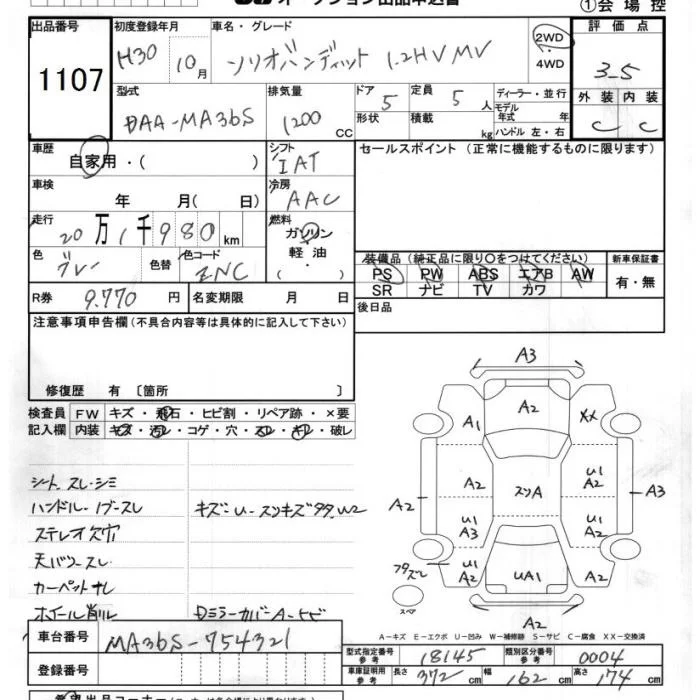 ①会場控
出品番号 初度登録年月 車名・グレード 評価点
1107 H30 10月 ソリオバンディット 1.2HV MV 2WD・4WD 3-5
型式 排気量 ドア 定員 ディーラー・並行 外装 内装
DAA-MA36S 1200 CC 5 5人 モデル年式 年 C C
形状 積載 kg ハンドル 左・右
車歴 シフト セールスポイント (正常に機能するものに限ります)
自家用・( ) IAT
車検 冷房
年 月( 日) AAC
走行 燃料
20万1千980km ガソリン
色 色替 色コード 軽油
グレー ZNC ・( )
装備品 (純正品に限り〇をつけてください) 新車保証書
PS PW ABS エアB AW 有・無
SR ナビ TV カワ
R券 9.770円 名変期限 月 日 後日品
注意事項申告欄(不具合内容等は具体的に記入して下さい)
修復歴 有 〔箇所 〕
検査員 FW キズ・飛石・ヒビ割・リペア跡・×要
記入欄 内装 キズ・汚レ・コゲ・穴・スレ・キレ・破レ
シート スレ・シミ
ハンドル・ノブースレ キズ-U-スリキズ多々W2
ステレオ欠穴
天バリスレ
カーペットナレ
ホイール削ル Dミラーカバー A-ヒビ
A3
A2
A1 XX
A2 スリA U1 A2
A2 A3
U1 A3 U1 A2
フタズレ U1 A2 UA1 A2
スペア
A2
A-キズ E-エクボ U-凹み W-補修跡 S-サビ C-腐食 XX-交換済
車台番号 MA36S-754321
登録番号
型式指定番号 参考 18145 類別区分番号 参考 0004
車庫証明用 参考 長さ 372cm 幅 162cm 高さ 174cm